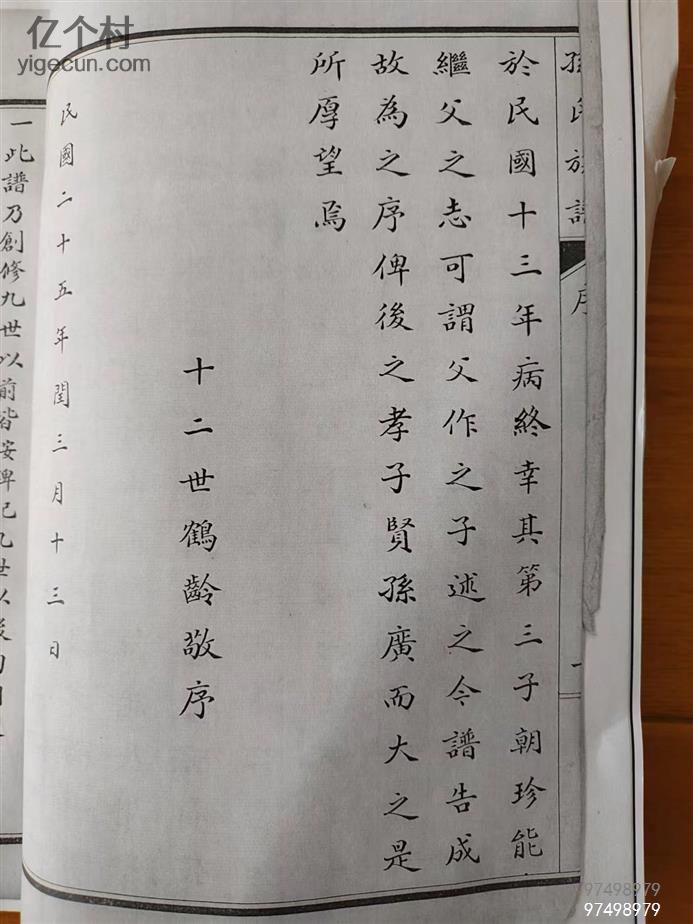 亿个村
yigecun.com
孫氏族譜
序
於民國十三年病終幸其第三子朝珍能
繼父之志可謂父作之子述之今譜告成
故為之序俾後之孝子賢孫廣而大之是
所厚望焉
十二世鶴齡敬序
民國二十五年閏三月十三日
一此譜乃創修九世以前皆按碑記九世以後
97498979
97498979